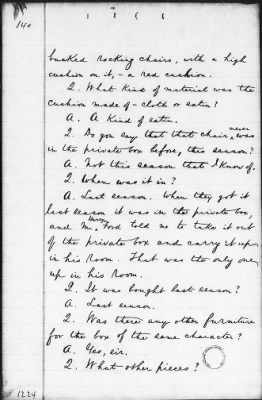 140
backed rocking chairs, with a high
cushion on it, - a red cushion.
Q. What kind of material was the
cushion made of - cloth or satin?
A. A kind of satin.
Q. Do you say that that chair never was
in the private box before, this season?
A. Not this season that I know of.
Q. When was it in?
A. Last season. When they got it
last season it was in the private box,
and Mr. Harry Ford told me to take it out
of the private box and carry it up
in his room. That was the only one
up in his room.
Q. It was bought last season?
A. Last season.
Q. Was there any other furniture
for the box of the same character?
A. Yes, sir.
Q. What other pieces?
1224